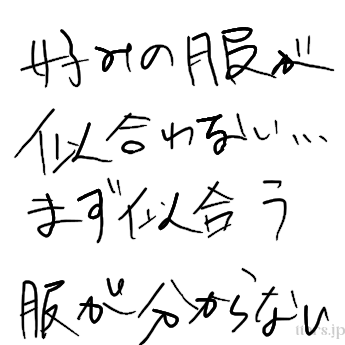 好みの服が
似合わない...
まず似合う
服が分からない